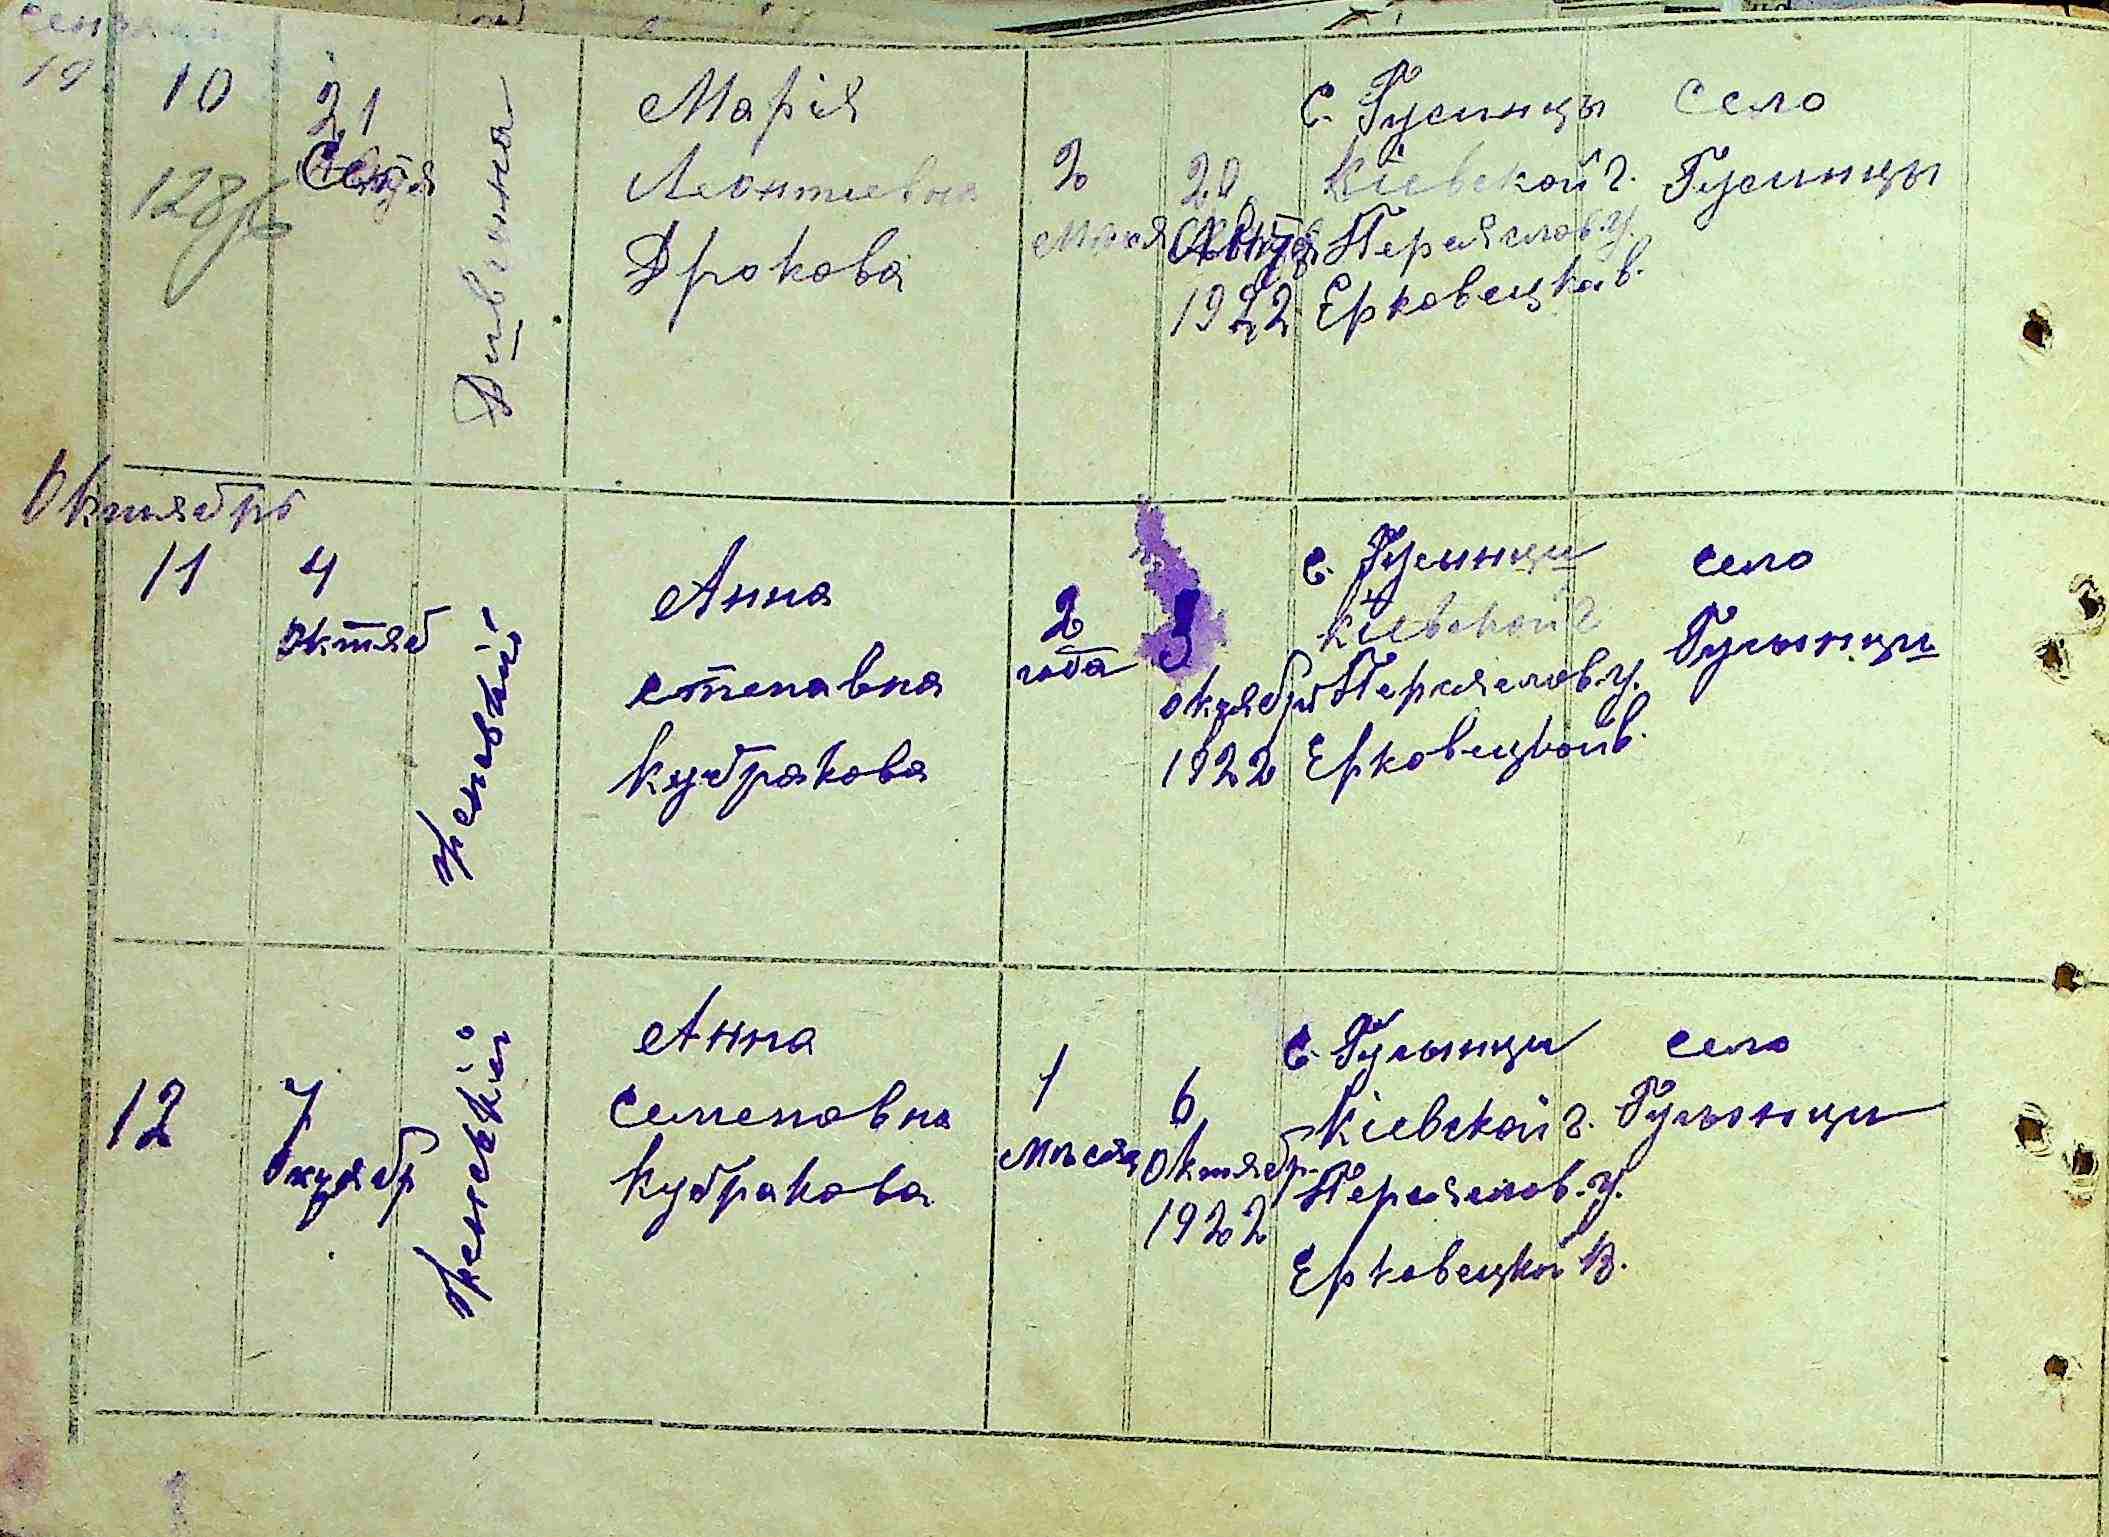 10
128
21
Сентя
Дивчинка
Марія
Леонтиевна
Дрокова
2
20
1922
С. Гусинцы
Кіевской г.
Переяслов. у.
Ерковецка в.
село
Гусинцы
Октябрь
11
4
октяб
женскій
Анна
степавна
Кубракова
2
года
3
октября
1922
с. Гусинци
Кіевской г
Переяслов. у.
Ерковецкой в.
село
Гусинци
12
7
октябр
женскій
Анна
Семеновна
Кубракова
1
Мѣсяц
6
октябр.
1922
с. Гусинци
Кіевской г.
Переяслов. у.
Ерковецкой в.
село
Гусинци